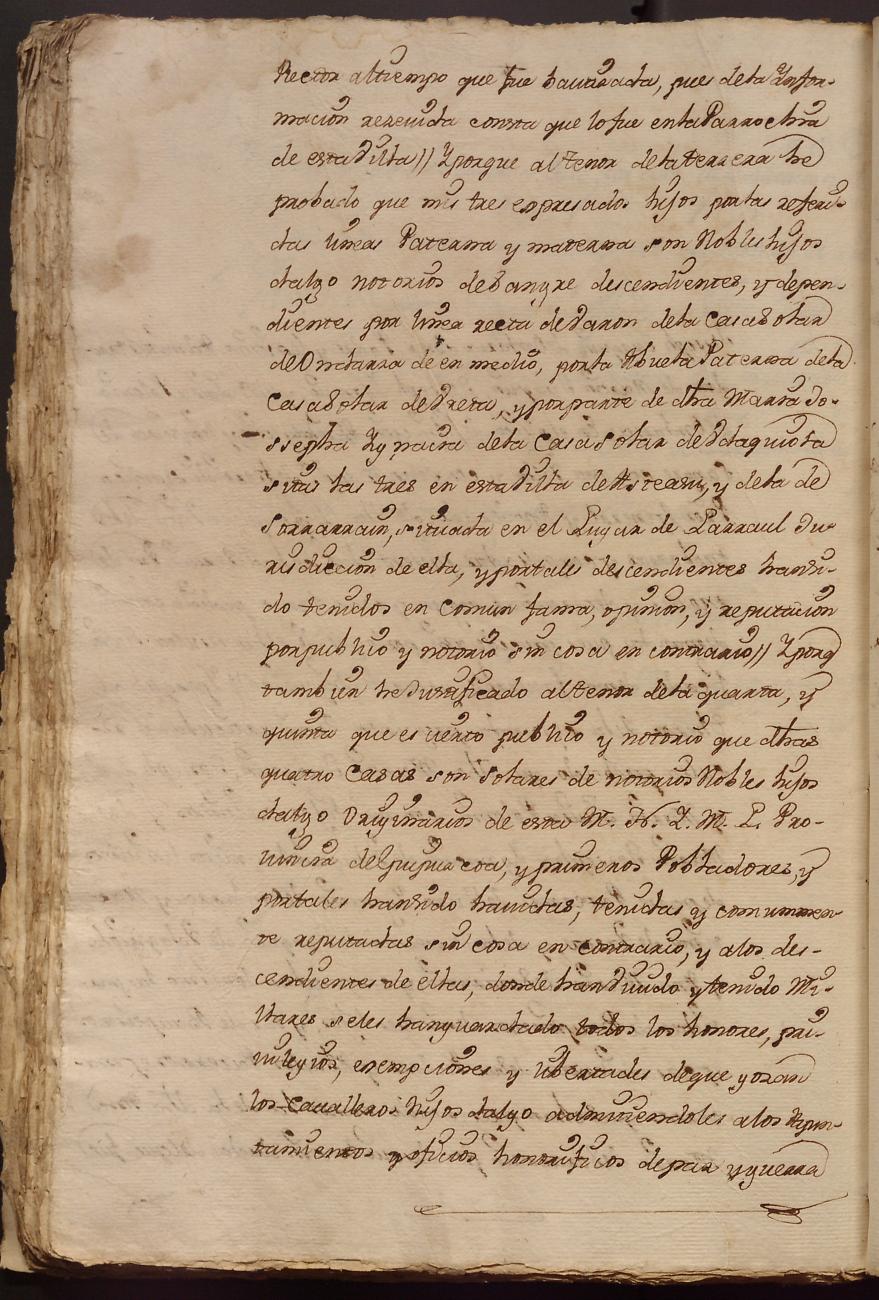 Rector altiempo que fue bautisada, pues dela Infor-
macion rezeuida consta que lo fue enlaParrochia
de esta Villa // Yporque al tenor delaterzera he
probado que mis tres expresados hijos porlas referi-
das lineas Paterna y materna son Nobles hijos
dalgo notorios deSangre descendientes, y depen-
dientes por linea recta deVaron dela CasaSolar
deOndarra de en medio, porla AbuelaPaterna dela
CasaSolar de Vreta, yporparte de dha Maria Jo-
ssepha dela CasaSolar de
sitas las tres en estaVilla deAsteasu, y dela de
Sorrarrain, situada en el Lugar de Larraul Ju-
risdiccion de ella, yportales descendientes hansi-
do tenidos en comun fama, opinion, y reputacion
porpublico y notorio sin cosa en contrario // Yporq
tambien heJustificado altenor dela quarta, y
quinta que es cierto publico y notorio que dhas
quatro Casas son Solares de notorios Nobles hijos
dalgo Originarios de esta M. N. Y. M. L. Pro-
uincia deGuipuzcoa, yprimeros Pobladores, y
portales hansido hauidas, tenidas y comunmen-
te reputadas sin cosa en contrario, y alos des-
cendientes de ellas, donde hanViuido ytenido Mi-
llares seles hanguardado todos los honores, pri-
uilegios, exempciones y libertades deque gozan
los Caualleros hijos dalgo admitiendoles alos Ayun-
tamientos y oficios honorificos depaz yguerra